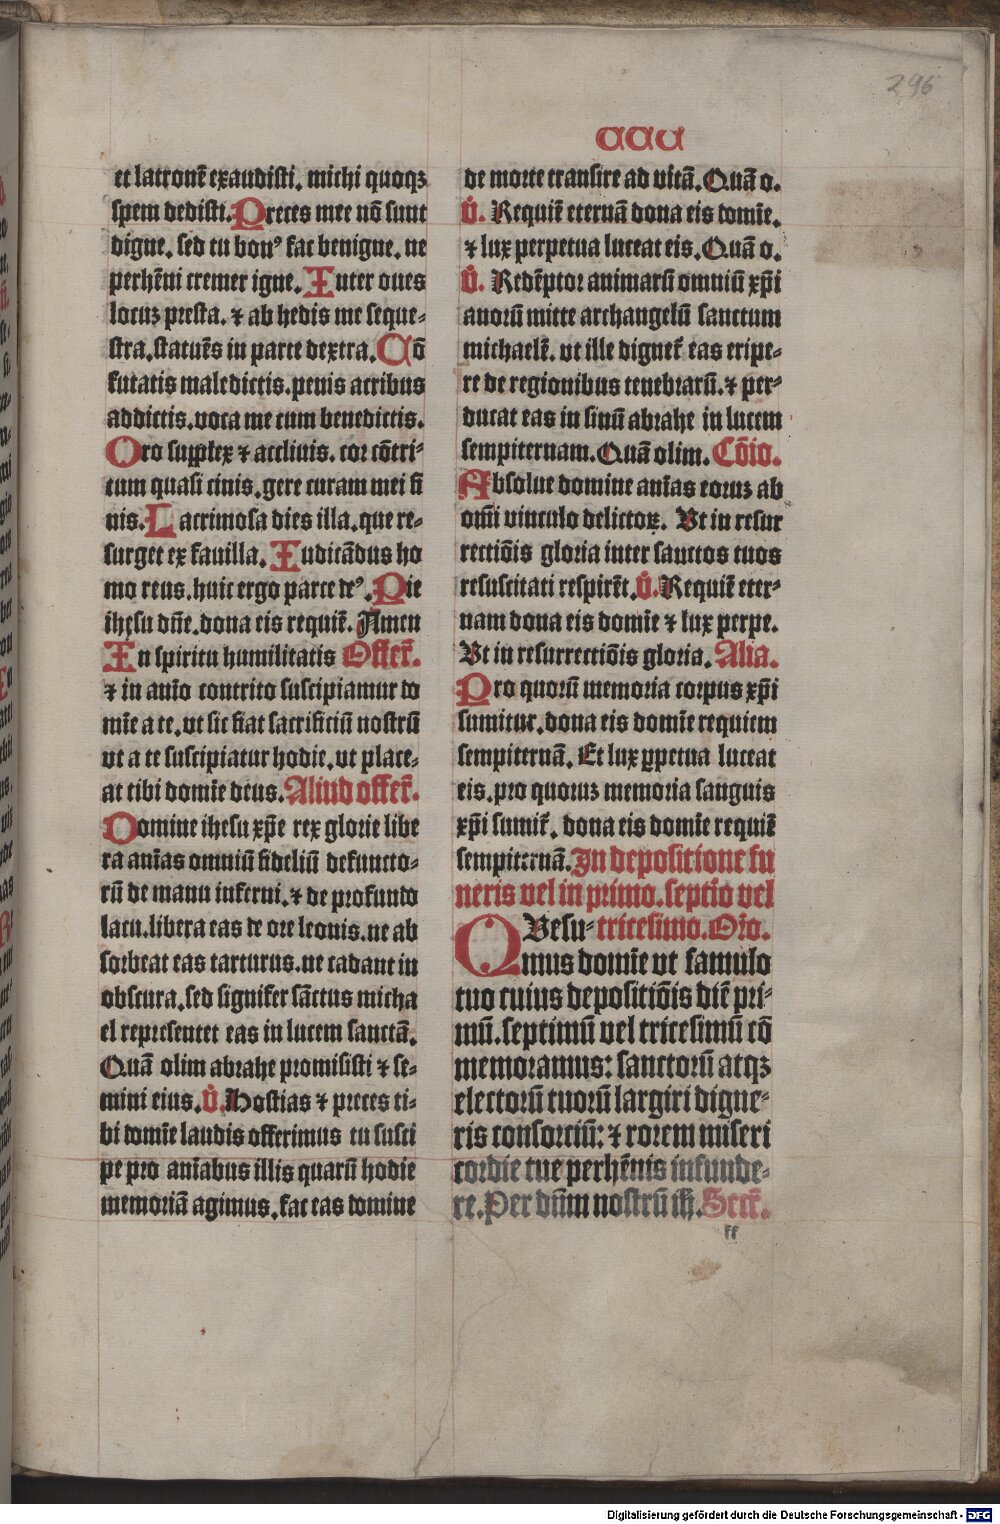 296
aau
et latronē exaudisti. michi quoqꝫ
spem dedisti. Preces mee nō sunt
digne. sed tu bonꝰ fac benigne. ne
perhēni cremer igne. Inter oues
locuꝫ presta. ⁊ ab hedis me seque⸗
stra. statuēs in parte dextra. Cō
futatis maledictis. penis acribus
addictis. uoca me cum benedictis.
Oro supplex ⁊ acclinis. cor cōtri⸗
tum quasi cinis. gere curam mei fi
nis. Lacrimosa dies illa. que re⸗
surget ex fauilla. Iudicādus ho
mo reus. huic ergo parce deꝰ. Pie
ihesu dn̄e. dona eis requiē. Amen
In spiritu humilitatis Offer̄.
⁊ in an̄io contrito suscipiamur do
mīe a te. ut sic fiat sacrificiū nostrū
ut a te suscipiatur hodie. ut place⸗
at tibi domīe deus. Aliud offer̄.
Domine ihesu xp̄e rex glorie libe
ra an̄ias omniū fideliū defuncto⸗
rū de manu inferni. ⁊ de profundo
lacu. libera eas de ore leonis. ne ab
sorbeat eas tarturus. ne cadant in
obscura. sed signifer sāctus micha
el representet eas in lucem sanctā.
Quā olim abrahe promisisti ⁊ se⸗
mini eius. V̊. Hostias ⁊ preces ti⸗
bi domīe laudis offerimus tu susci
pe pro an̄iabus illis quarū hodie
memoriā agimus. fac eas domine
de morte transire ad vitā. Quā o.
V̊. Requiē eternā dona eis domīe.
⁊ lux perpetua luceat eis. Quā o.
V̊. Redēptor animarū omniū xp̄i
anorū mitte archangelū sanctum
michaelē. ut ille dignet᷑ eas eripe⸗
re de regionibus tenebrarū. ⁊ per⸗
ducat eas in sinū abrahe in lucem
sempiternam. Quā olim. Cōio.
Absolue domine an̄ias eoruꝫ ab
om̄i vinculo delictoꝝ. Vt in resur
rectiōis gloria inter sanctos tuos
resuscitati respirēt. V̊. Requiē eter⸗
nam dona eis domīe ⁊ lux perpe.
Vt in resurrectiōis gloria. Alia.
Pro quorū memoria corpus xp̄i
sumitur. dona eis domīe requiem
sempiternā. Et lux ꝑpetua luceat
eis. pro quoruꝫ memoria sanguis
xp̄i sumit᷑. dona eis domīe requiē
sempiternā. In depositione fu
neris vel in primo. septīo vel
QVesu⸗ tricesimo. Or̄o.
mus domīe ut famulo
tuo cuius depositiōis diē pri⸗
mū. septimū vel tricesimū cō
memoramus: sanctorū atqꝫ
electorū tuorū largiri digne⸗
ris consorciū: ⁊ rorem miseri
cordie tue perhēnis infunde⸗
re. Per dn̄m nostrū ih̄. Secr̄.
ff
Digitalisierung gefördert durch die Deutsche Forschungsgemeinschaft - DFG